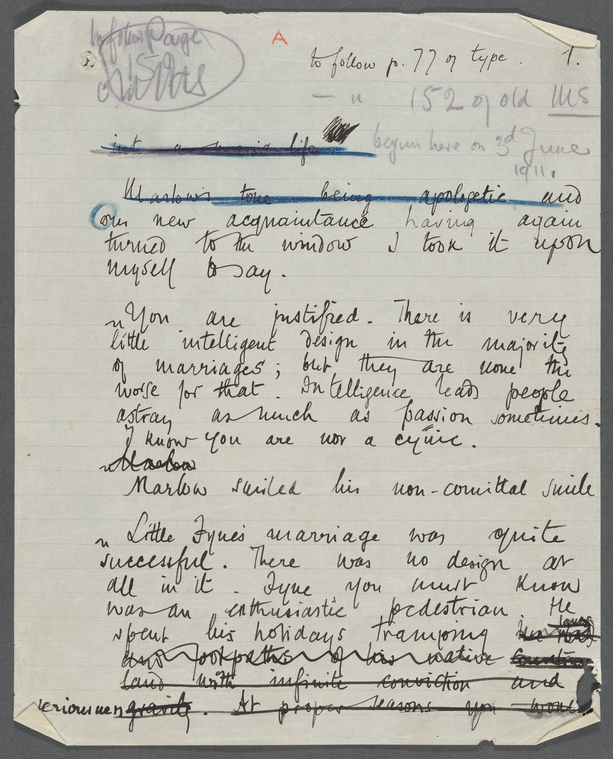 A
to follow p. 77 of type. 1.
— " 152 of old MS
begun here on 3d June
1911.
life
Marlow's tone being apologetic and
our new acquaintance having again
turned to the window I took it upon
myself to say.
"You are justified. There is very
little intelligent design in the majority
of marriages; but they are none the
worse for that. Intelligence leads people
astray as much as passion sometimes.
I know you are not a cynic.
"Marlow
Marlow smiled his non-comittal smile
"Little Fyne's marriage was quite
successful. There was no design at
all in it. Fyne you must know
was an enthusiastic pedestrian. He
spent his holidays tramping
and footpaths of his native country
land with infinite conviction and
seriousness gravity. At proper seasons you